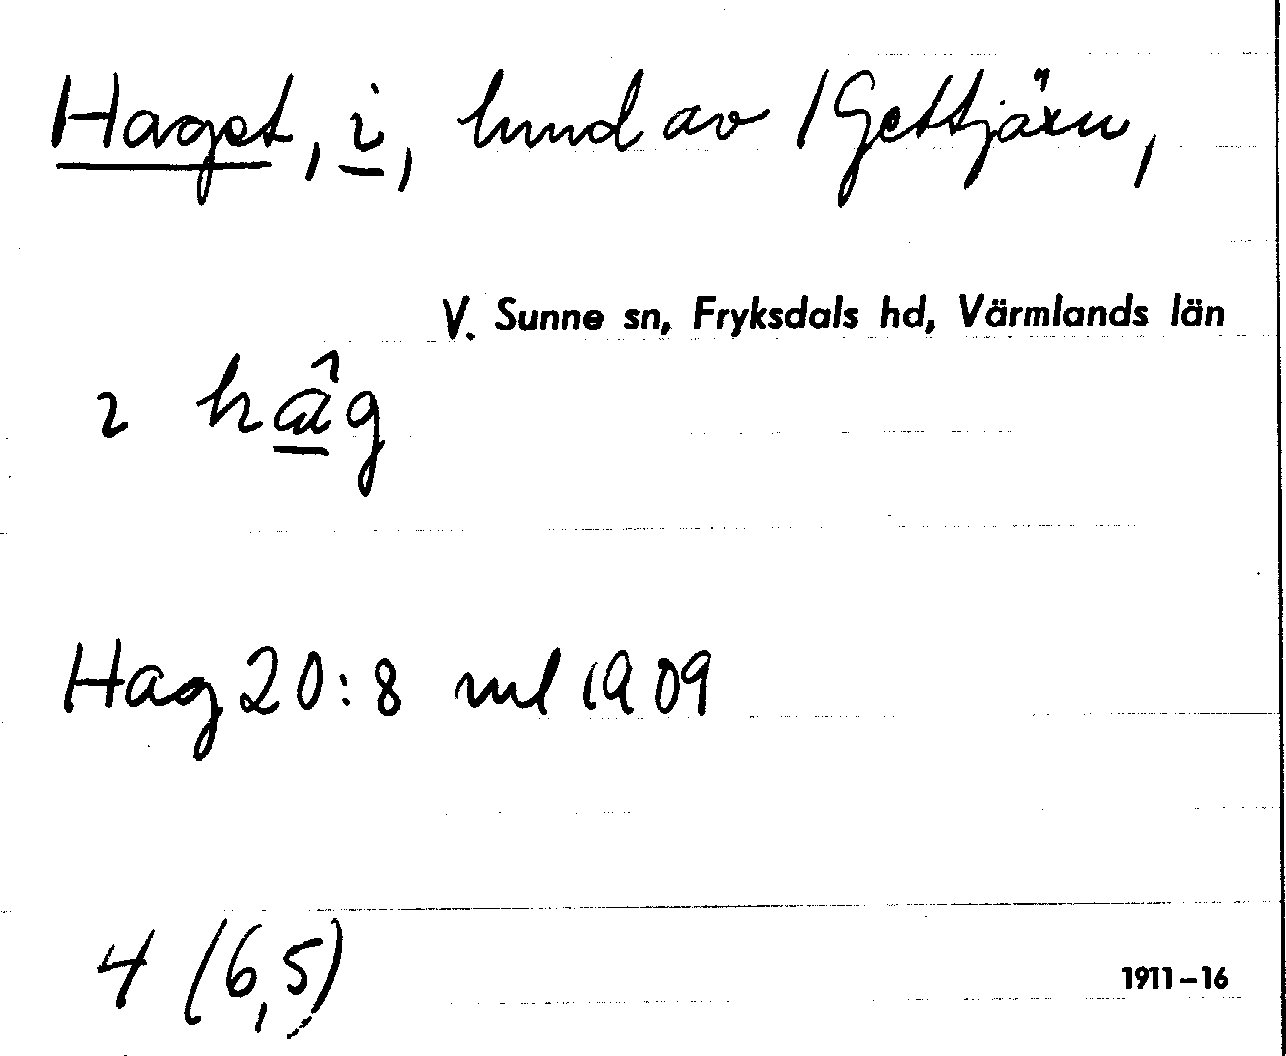 Haget, i, hmd av 1 Gettjärn,
V. Sunne sn, Fryksdals hd, Värmlands län
ı hâg
Hag 20:8 ml 1909
4 (6,5)
1911–16